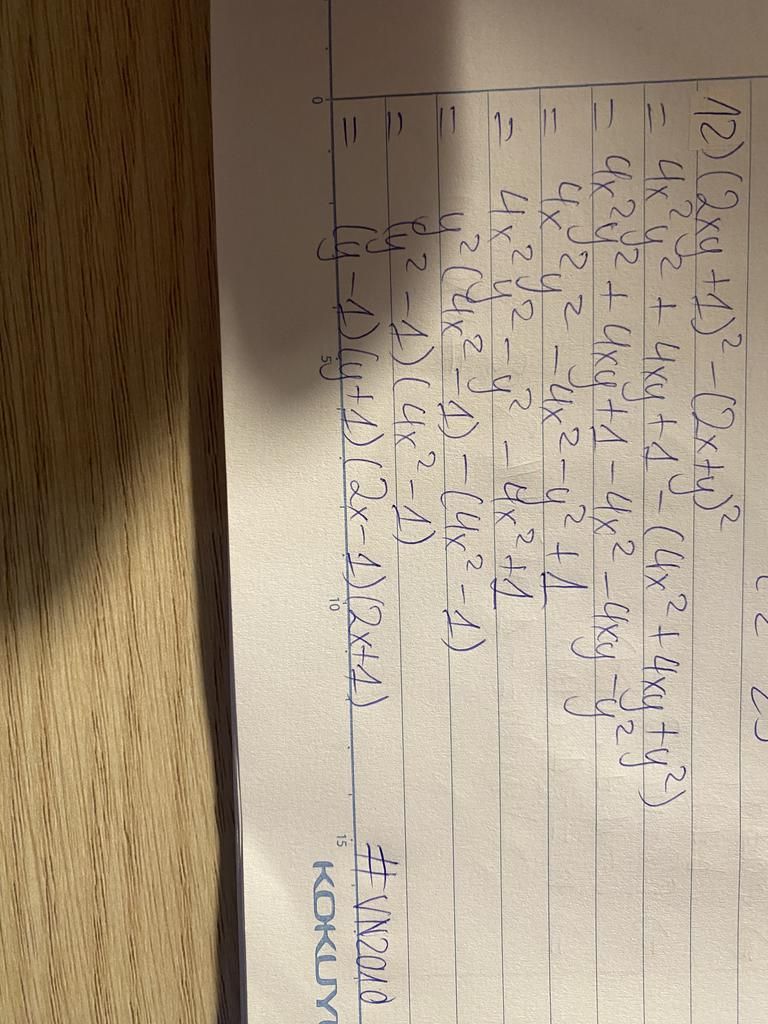 12) (2xy + 1)² - (2x + y)²
= 4x²y² + 4xy + 1 - (4x² + 4xy + y²)
= 4x²y² + 4xy + 1 - 4x² - 4xy - y²
= 4x²y² - 4x² - y² + 1
= 4x²y² - y² - 4x² + 1
= y²(4x² - 1) - (4x² - 1)
= (y² - 1)(4x² - 1)
= (y - 1)(y + 1)(2x - 1)(2x + 1)
#VN2010
0 5 10 15
KOKUY